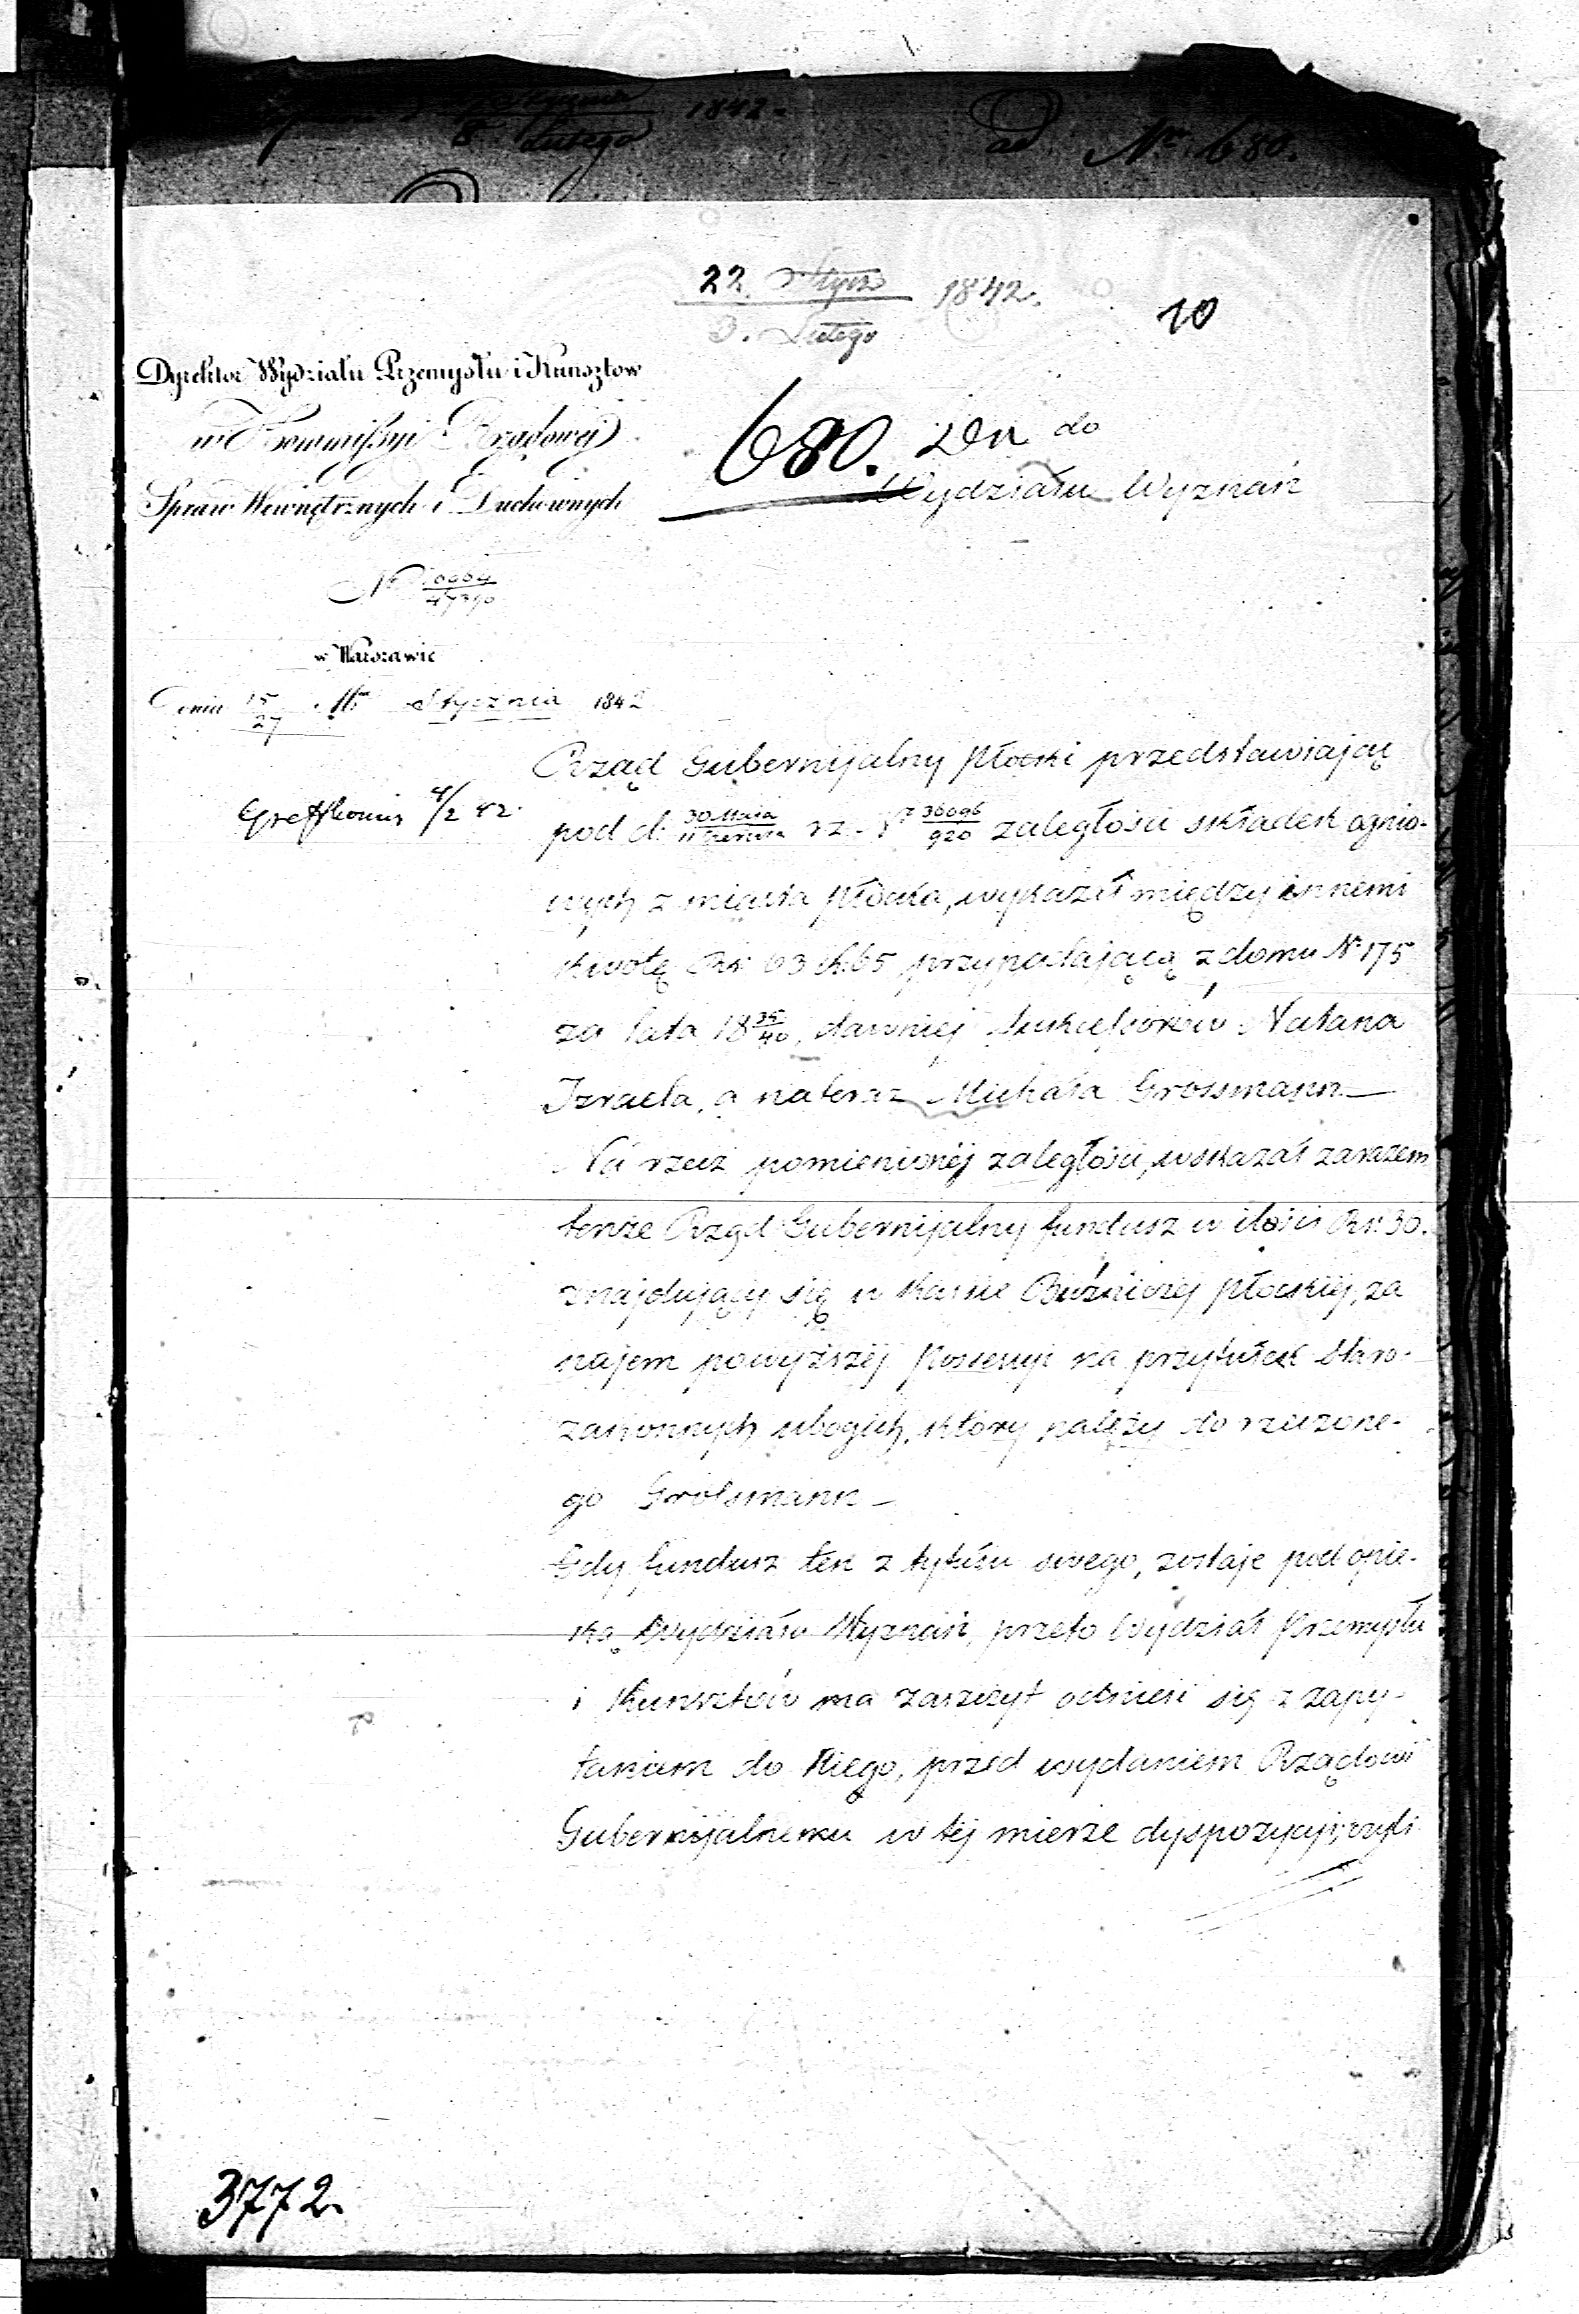 1842.
Lutego
ad Nr. 680.
22 Stycz 1842.
3. Lutego
10
Dyrektor Wydziału Przemysłu i Kunsztow
w Kommissyi Rządowej
Spraw Wewnętrznych i Duchownych
680. do
Wydziału Wyznań
w Warszawie
Dnia 15/27 Stycznia 1842
4/2 42.
Rząd Gubernijalny Płocki przedstawiając
pod d. 30 Maja/11 Czerwca rz. 36096/920 zaległości składek ognio-
wych z miasta Płocka, wykazał między innemi
kwotę Rs. 63 k. 65 przypadającą z domu N 175
za lata 18 35/40, dawniej Sukcessorów Natana
Izraela, a nateraz Michała Grossmann.—
Na rzecz pomienionéj zaległości, wskazał zarazem
tenże Rząd Gubernijalny fundusz w ilości Rs. 30.
znajdujący się w kassie Bóżniczej Płockiéj, za
najem powyższéj Possessyi na przytułek Staro-
zakonnych ubogich, który należy do rzeczone-
go Grossmann—
Gdy fundusz ten z tytułu swego, zostaje pod opie-
ką Wydziału Wyznań, przeto Wydział Przemysłu
i Kunsztów ma zaszczyt odnieść się z zapy-
taniem do Niego, przed wydaniem Rządowi
Gubernijalnemu w téj mierze dyspozycyi, czyli
3772.